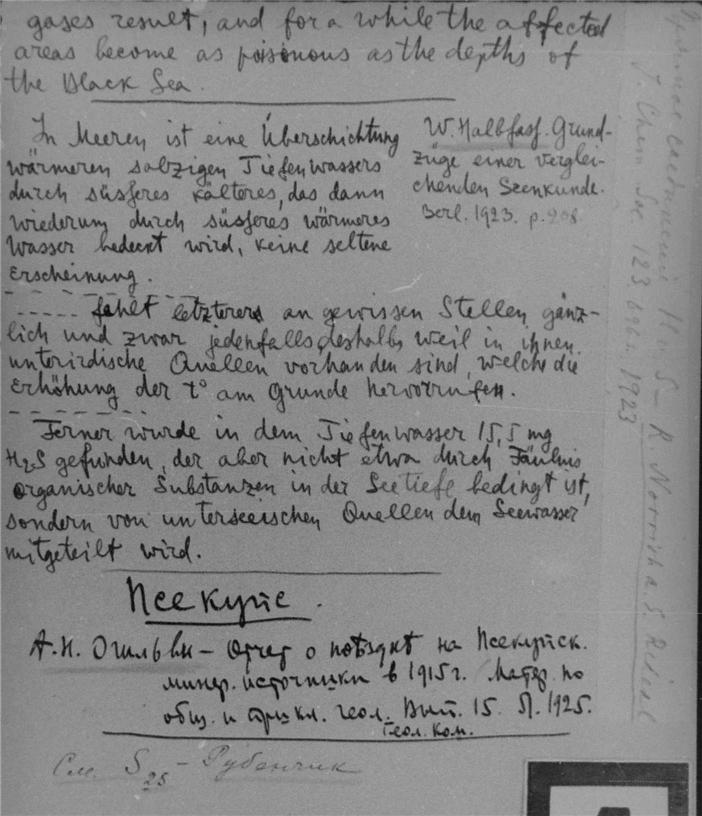 gases result, and for a while the affected
areas become as poisonous as the depths of
the Black Sea.
In Meeren ist eine Überschichtung
wärmeren salzigen Tiefenwassers
durch süsseres kälteres, das dann
wiederum durch süsseres wärmeres
Wasser bedeckt wird, keine seltene
Erscheinung.
W. Halbfass. Grund-
züge einer verglei-
chenden Seenkunde.
Berl. 1923. p.
------ fehlt letzterers an gewissen Stellen gänz-
lich und zwar jedenfalls deshalb, weil in ihnen
unterirdische Quellen vorhanden sind, welche die
Erhöhung der t° am Grunde hervorrufen.
Ferner wurde in dem Tiefenwasser 15,5 mg
H₂S gefunden, der aber nicht etwa durch Fäulnis
organischer Substanzen in der Seetiefe bedingt ist,
sondern von unterseeischen Quellen dem Seewasser
mitgeteilt wird.
Псекупс.
А.Н. Огильви – Отчет о поѣздкѣ на Псекупск.
минер. источники в 1915 г. Матер. по
общ. и прикл. геол. Вып. 15. Л. 1925.
Геол. Ком.
См. S₂₅ – Рубенчик
H и S – R. Norrish a. E. Rideal
J. Chem. Soc. 123 1923